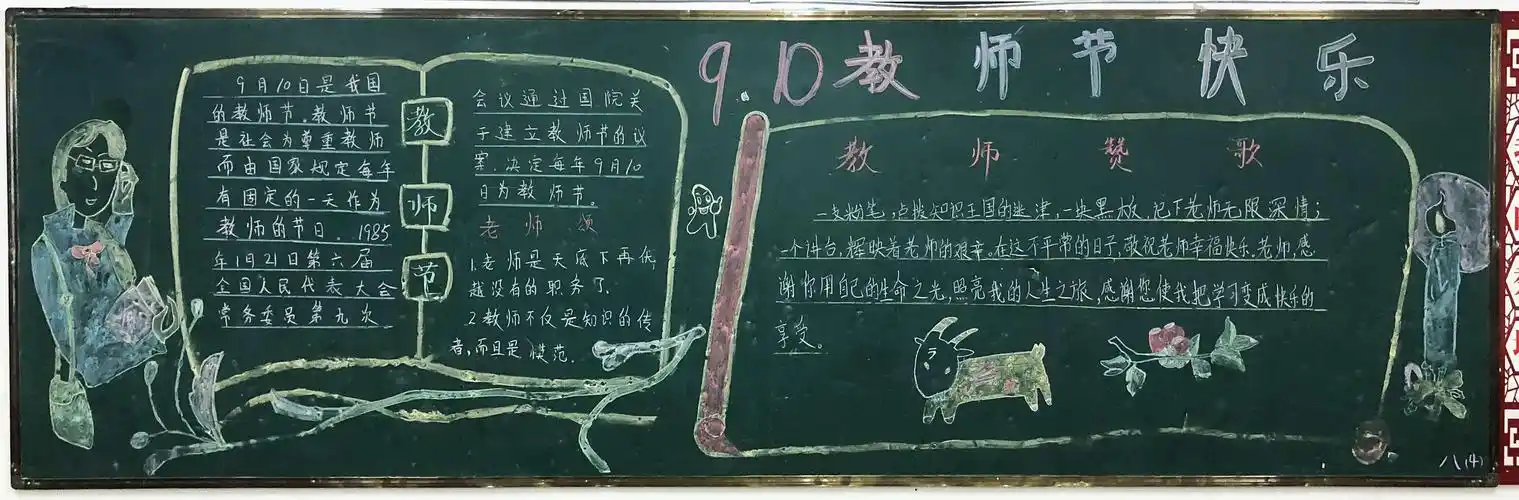 9.10教师节快乐
9月10日是我国
的教师节。教师节
是社会为尊重教师
而由国家规定每年
有固定的一天作为
教师的节日。1985
年1月21日第六届
全国人民代表大会
常务委员第九次
教
师
节
会议通过国院关
于建立教师节的议
案.决定每年9月10
日为教师节。
老师颂
1.老师是天底下再优
越没有的职务了.
2.教师不仅是知识的传
者,而且是模范.
教师赞歌
一支粉笔,点拨知识王国的迷津,一块黑板,记下老师无限深情;
一个讲台,辉映着老师的艰辛。在这不平常的日子,敬祝老师幸福快乐.老师,感
谢你用自己的生命之光,照亮我的人生之旅,感谢您使我把学习变成快乐的
享受。
八(4)